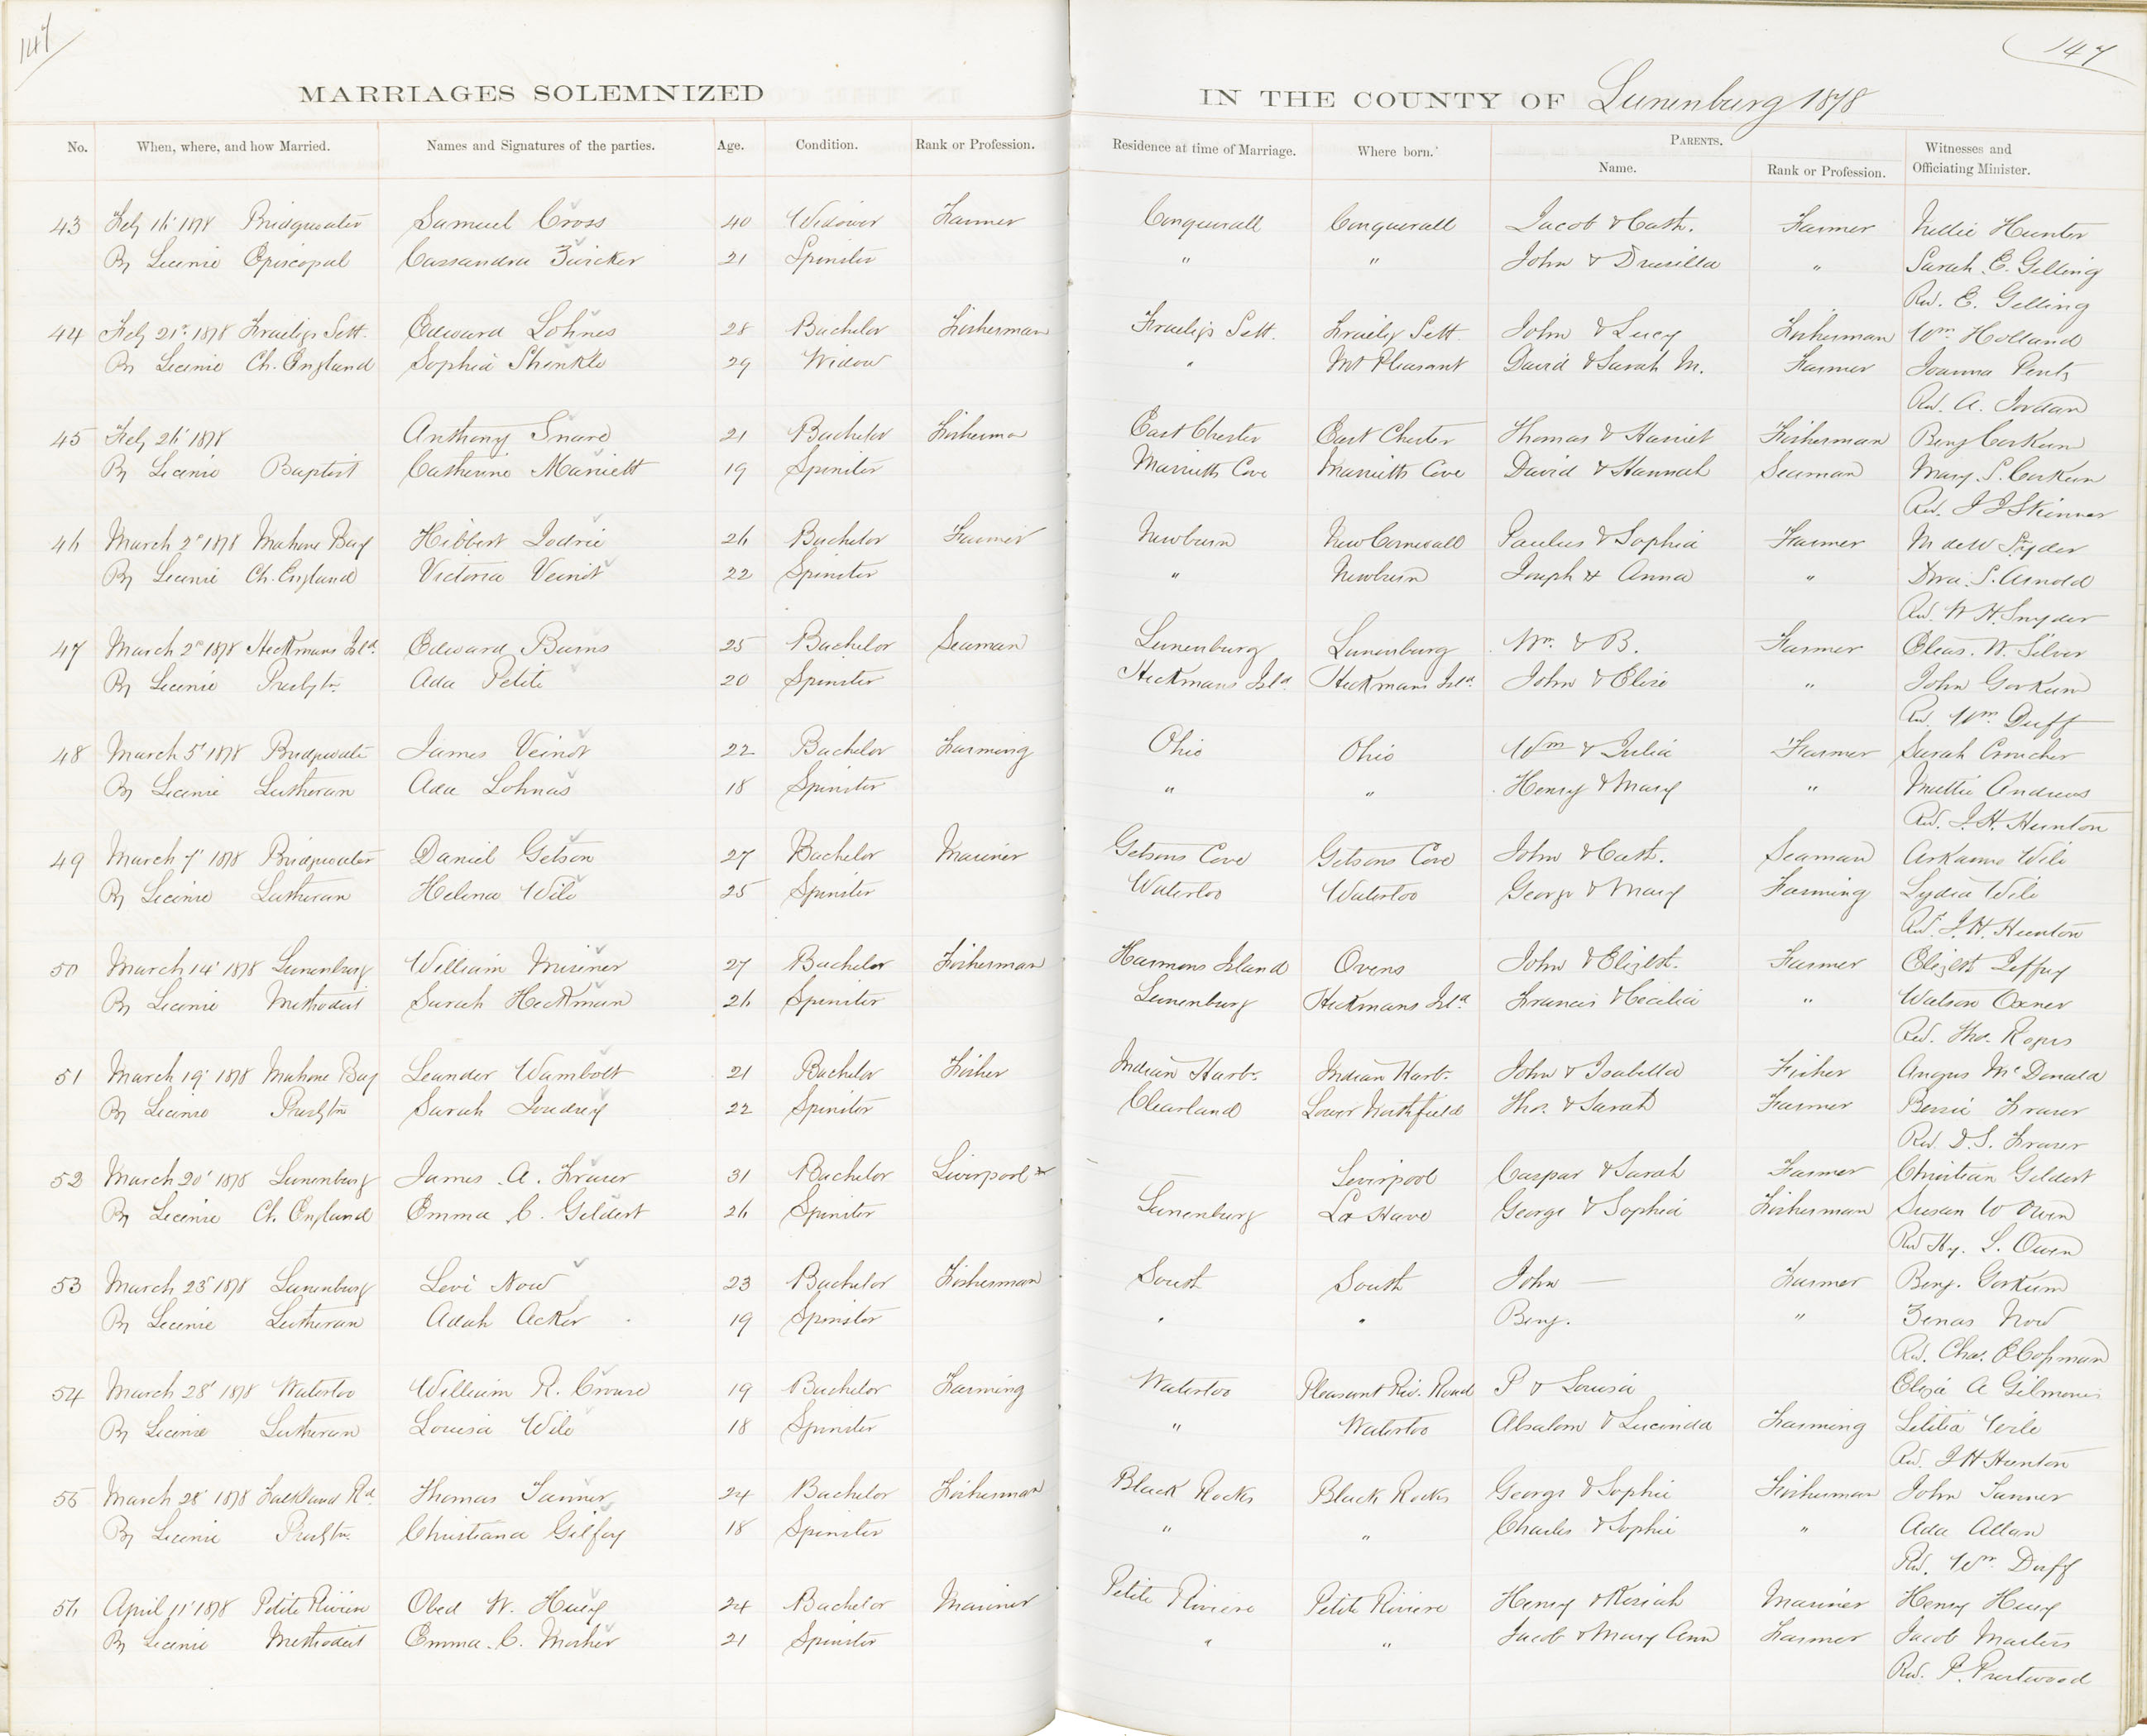 147
147
MARRIAGES SOLEMNIZED IN THE COUNTY OF Lunenburg 1878
No. When, where, and how Married. Names and Signatures of the parties. Age. Condition. Rank or Profession. Residence at time of Marriage. Where born. PARENTS. Name. Rank or Profession. Witnesses and Officiating Minister.
43 Feby 16' 1878 Bridgwater Samuel Cross 40 Widower Farmer Conquerall Conquerall Jacob & Cath. Farmer Nellie Hunter
By Licenie Episcopal Cassandra Zwicker 21 Spinster " " John & Drusilla " Sarah E. Gelling
Rev. E. Gelling
44 Feby 21st 1878 Fraeligs Sett. Edward Lohnes 28 Bachelor Fisherman Fraeligs Sett. Fraelig Sett. John & Lucy Fisherman Wm Holland
By Licenie Ch. England Sophia Shenkle 29 Widow " Mt Pleasant David & Sarah M. Farmer Joanna Pentz
Rev. A. Jordan
45 Feby 26' 1878 Anthony Snare 21 Bachelor Fisherman East Chester East Chester Thomas & Harriet Fisherman Benj Corkum
By Licenie Baptist Catherine Marriett 19 Spinster Marrietts Cove Marrietts Cove David & Hannah Seaman Mary S. Corkum
Rev. I J Skinner
46 March 2d 1878 Mahone Bay Hibbert Jodrie 26 Bachelor Farmer Newburn New Cornwall Paulus & Sophia Farmer M deW Syder
By Licenie Ch. England Victoria Veinot 22 Spinster " Newburn Joseph & Anna " S. Arnold
Rev. W H. Snyder
47 March 2d 1878 Heckmans Isld. Edward Burns 25 Bachelor Seaman Lunenburg Lunenburg Wm. & B. Farmer Eleas. W. Silver
By Licenie Presbytn. Ada Petite 20 Spinster Heckmans Isld. Heckmans Isld. John & Elise " John Gorkum
Rev. Wm. Duff
48 March 5' 1878 Bridgwater James Veinot 22 Bachelor Farming Ohio Ohio Wm & Julia Farmer Sarah Croucher
By Licenie Lutheran Ada Lohnas 18 Spinster " " Henry & Mary " Mattie Andrews
Rev. J. H. Hunton
49 March 7' 1878 Bridgwater Daniel Getson 27 Bachelor Mariner Getsons Cove Getsons Cove John & Cath. Seaman Arkanna Wile
By Licenie Lutheran Helena Wile 25 Spinster Waterloo Waterloo George & Mary Farming Lydia Wile
Rev. J. H. Hunton
50 March 14' 1878 Lunenburg William Misener 27 Bachelor Fisherman Harmons Island Ovens John & Elizbt. Farmer Elizbt Jeffrey
By Licenie Methodist Sarah Heckman 26 Spinster Lunenburg Heckmans Isld. Francis & Cecilia " Watson Oxner
Rev. Tho. Rogers
51 March 19' 1878 Mahone Bay Leander Wambolt 21 Bachelor Fisher Indian Harb. Indian Harb. John & Isabella Fisher Angus McDonald
By Licenie Presbytn Sarah Joudrey 22 Spinster Clearland Lower Northfield Thos. & Sarah Farmer Bessie Fraser
Rev. D. S. Fraser
52 March 20' 1878 Lunenburg James A. Fraser 31 Bachelor Liverpool — Liverpool Caspar & Sarah Farmer Christian Geldert
By Licenie Ch. England Emma C. Geldert 26 Spinster Lunenburg La Have George & Sophia Fisherman Susan W Owen
Rev Hy. L. Owen
53 March 23' 1878 Lunenburg Levi Now 23 Bachelor Fisherman South South John — Farmer Benj. Gorkum
By Licenie Lutheran Adah Acker 19 Spinster " " Benj. " Zenas Now
Rev. Chas. E Cosman
54 March 28' 1878 Waterloo William R. Crouse 19 Bachelor Farming Waterloo Pleasant Riv. Road P & Louisa Eliza A Gilmore
By Licenie Lutheran Louisa Wile 18 Spinster " Waterloo Absalom & Lucinda Farming Letitia Wile
Rev. J H Hunton
55 March 28' 1878 Falkland Rd. Thomas Tanner 24 Bachelor Fisherman Black Rocks Black Rocks George & Sophie Fisherman John Tanner
By Licenie Presbytn. Christiana Gilfoy 18 Spinster " " Charles & Sophie " Ada Allan
Rev. Wm Duff
56 April 11' 1878 Petite Riviere Obed W. Huey 24 Bachelor Mariner Petite Riviere Petite Riviere Henry & Kesiah Mariner Henry Huey
By Licenie Methodist Emma C. Mosher 21 Spinster " " Jacob & Mary Ann Farmer Jacob Masters
Rev. P. Prestwood